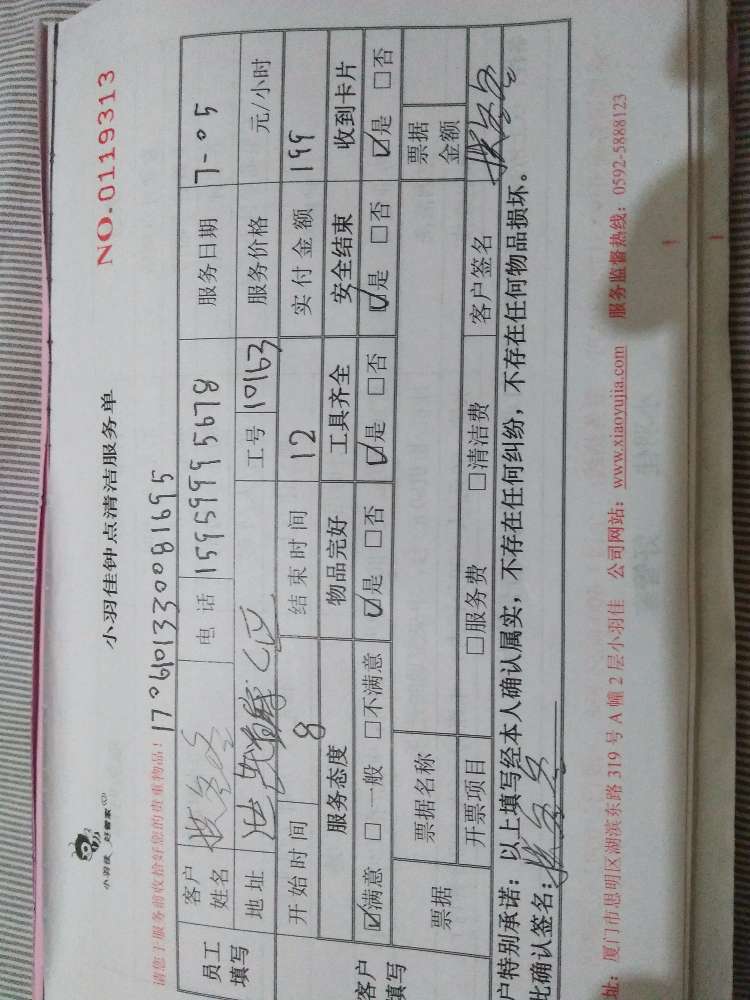 小羽佳 好管家
NO.0119313
小羽佳钟点清洁服务单
请您于服务前收拾好您的贵重物品！ 170610133008 1695
员工填写 客户姓名 电话 15959995678 服务日期 7-05
地址 工号 10163 服务价格 元/小时
开始时间 8 结束时间 12 实付金额 199
客户填写 服务态度 物品完好 工具齐全 安全结束 收到卡片
☑满意 □一般 □不满意 ☑是 □否 ☑是 □否 ☑是 □否 ☑是 □否
票据 票据名称 票据金额
开票项目 □服务费 □清洁费 客户签名
户特别承诺：以上填写经本人确认属实，不存在任何纠纷，不存在任何物品损坏。
此确认签名：
址：厦门市思明区湖滨东路 319 号 A 幢 2 层小羽佳 公司网站：www.xiaoyujia.com 服务监督热线：0592-5888123